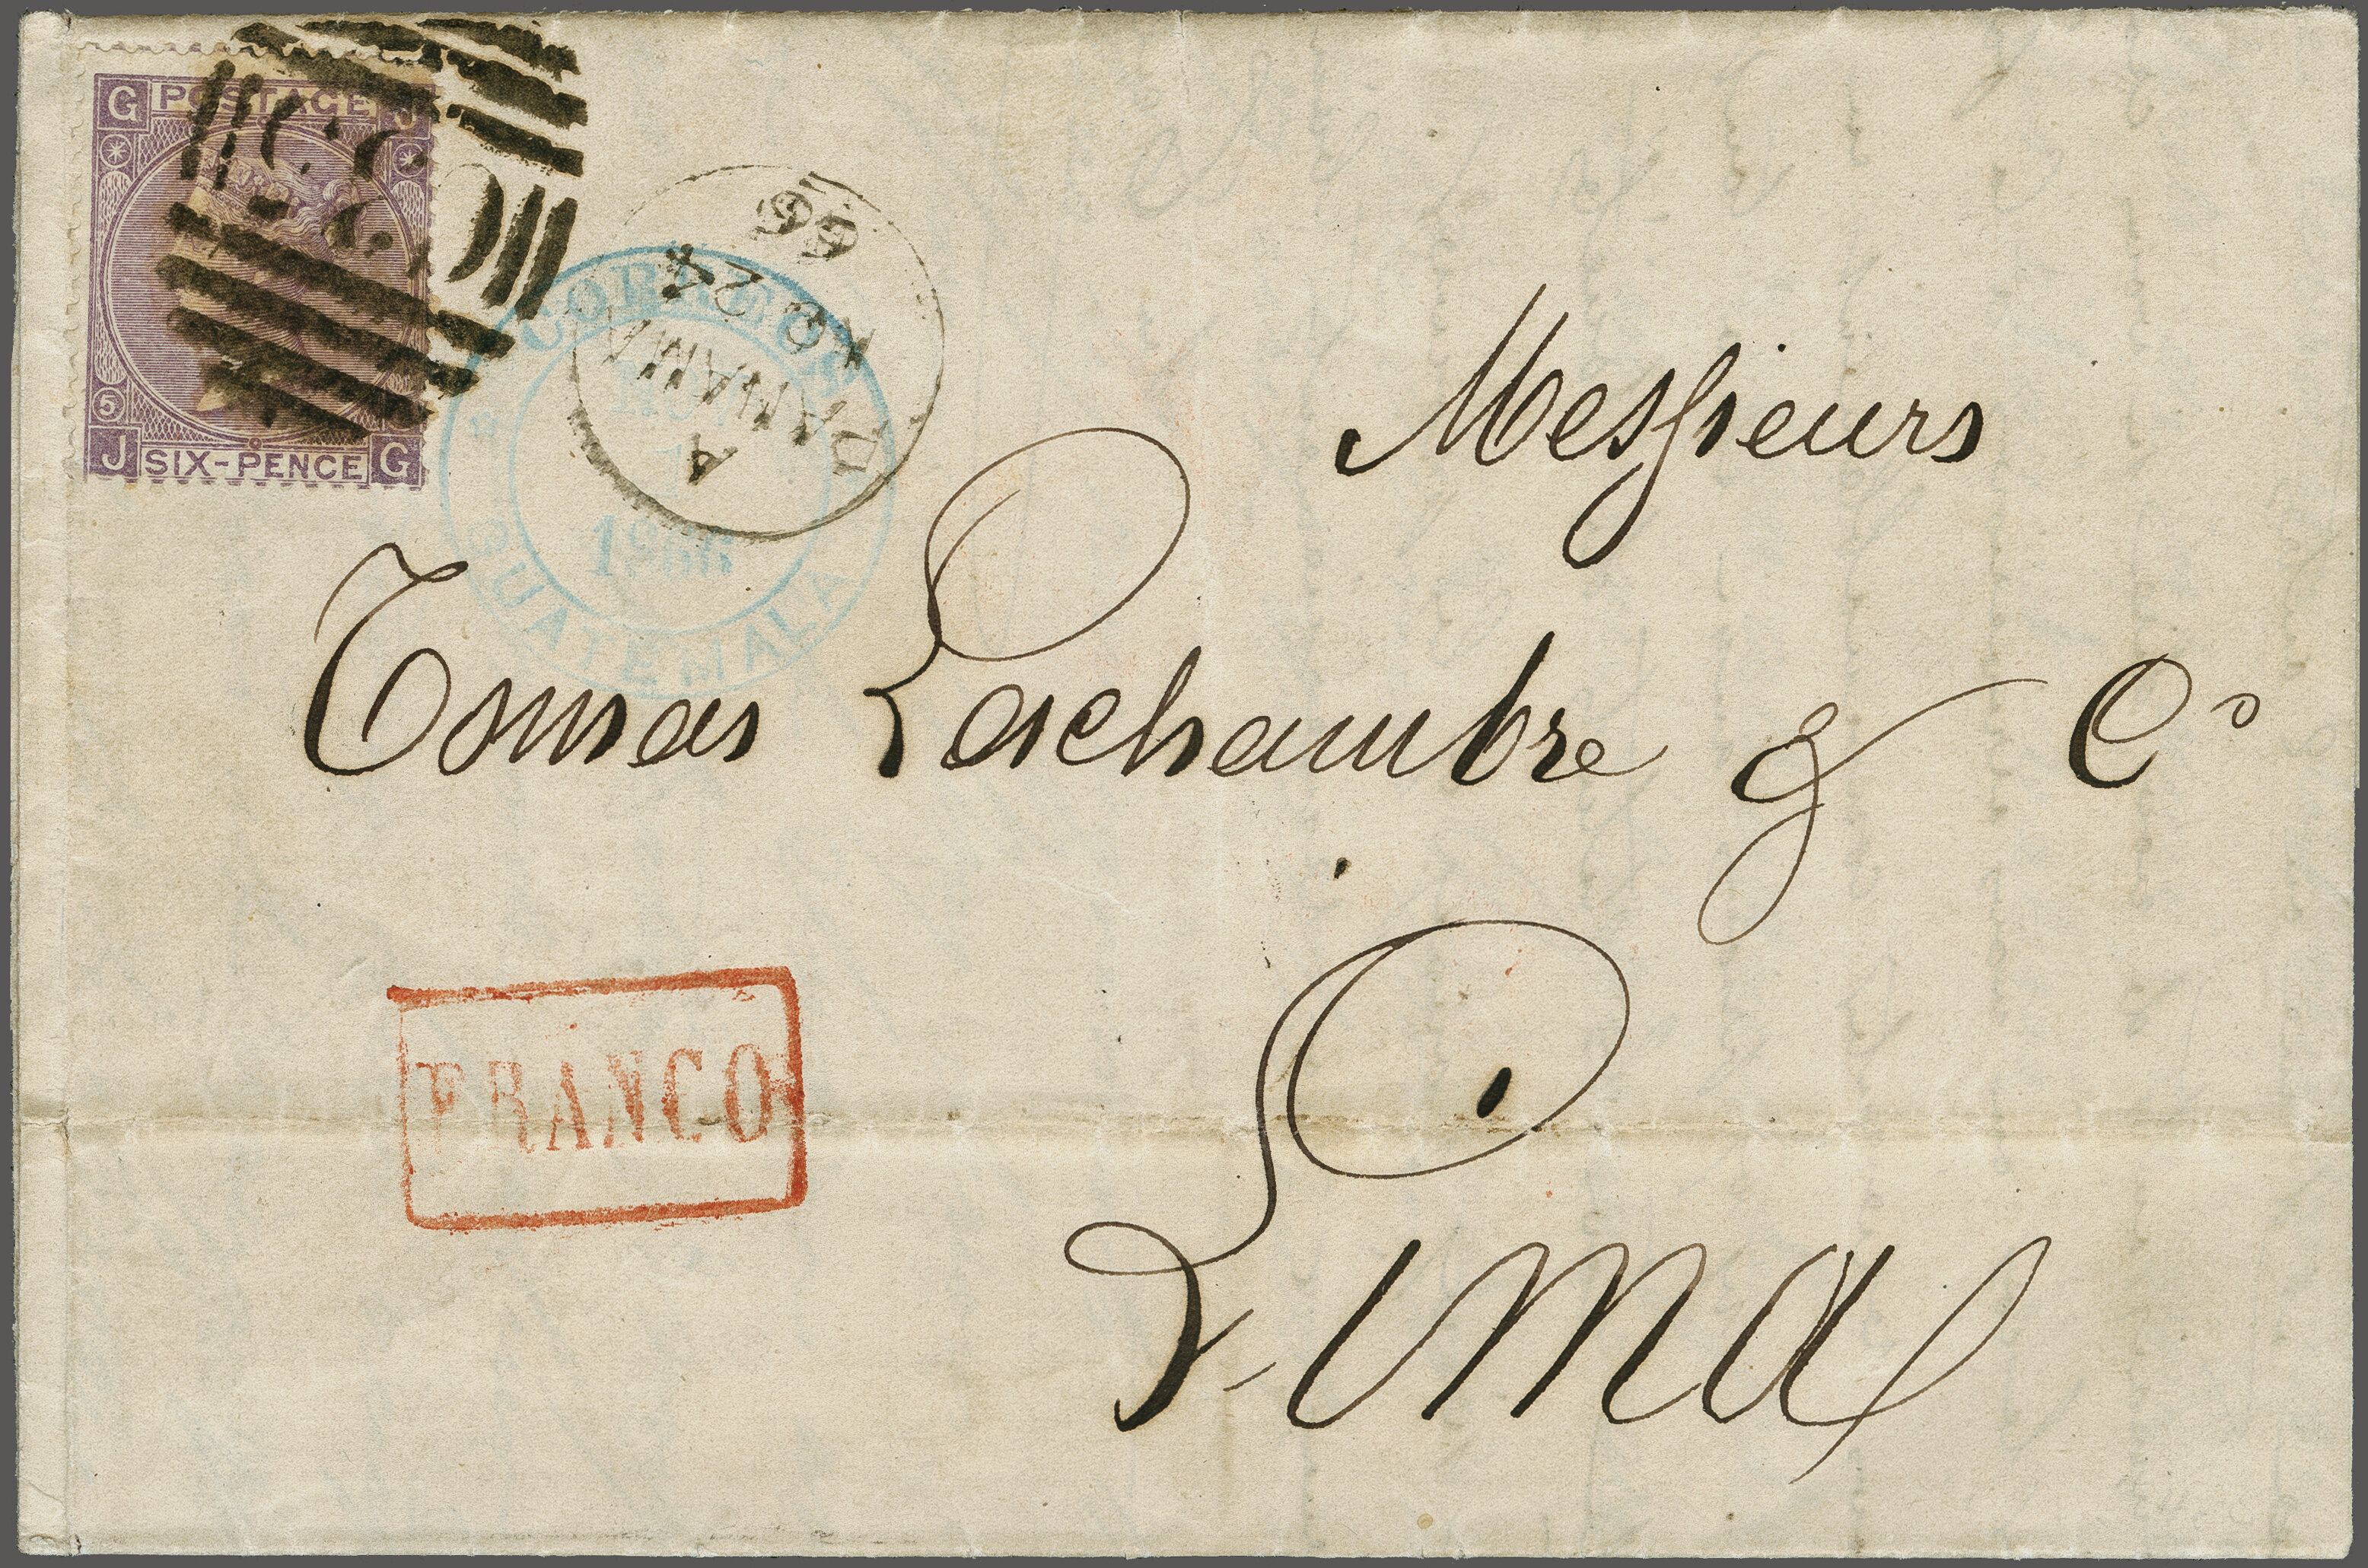 G POSTAGE J
5
J SIX-PENCE G
CORREOS
GUATEMALA
A
PANAMA
NO 24
66
Messieurs
Tomas Lachambre & Cº
FRANCO
Lima